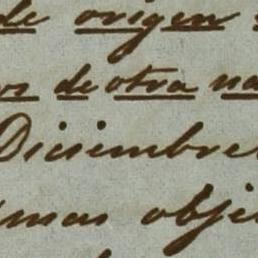 de origen
de otra na
Diciembre
mas obje